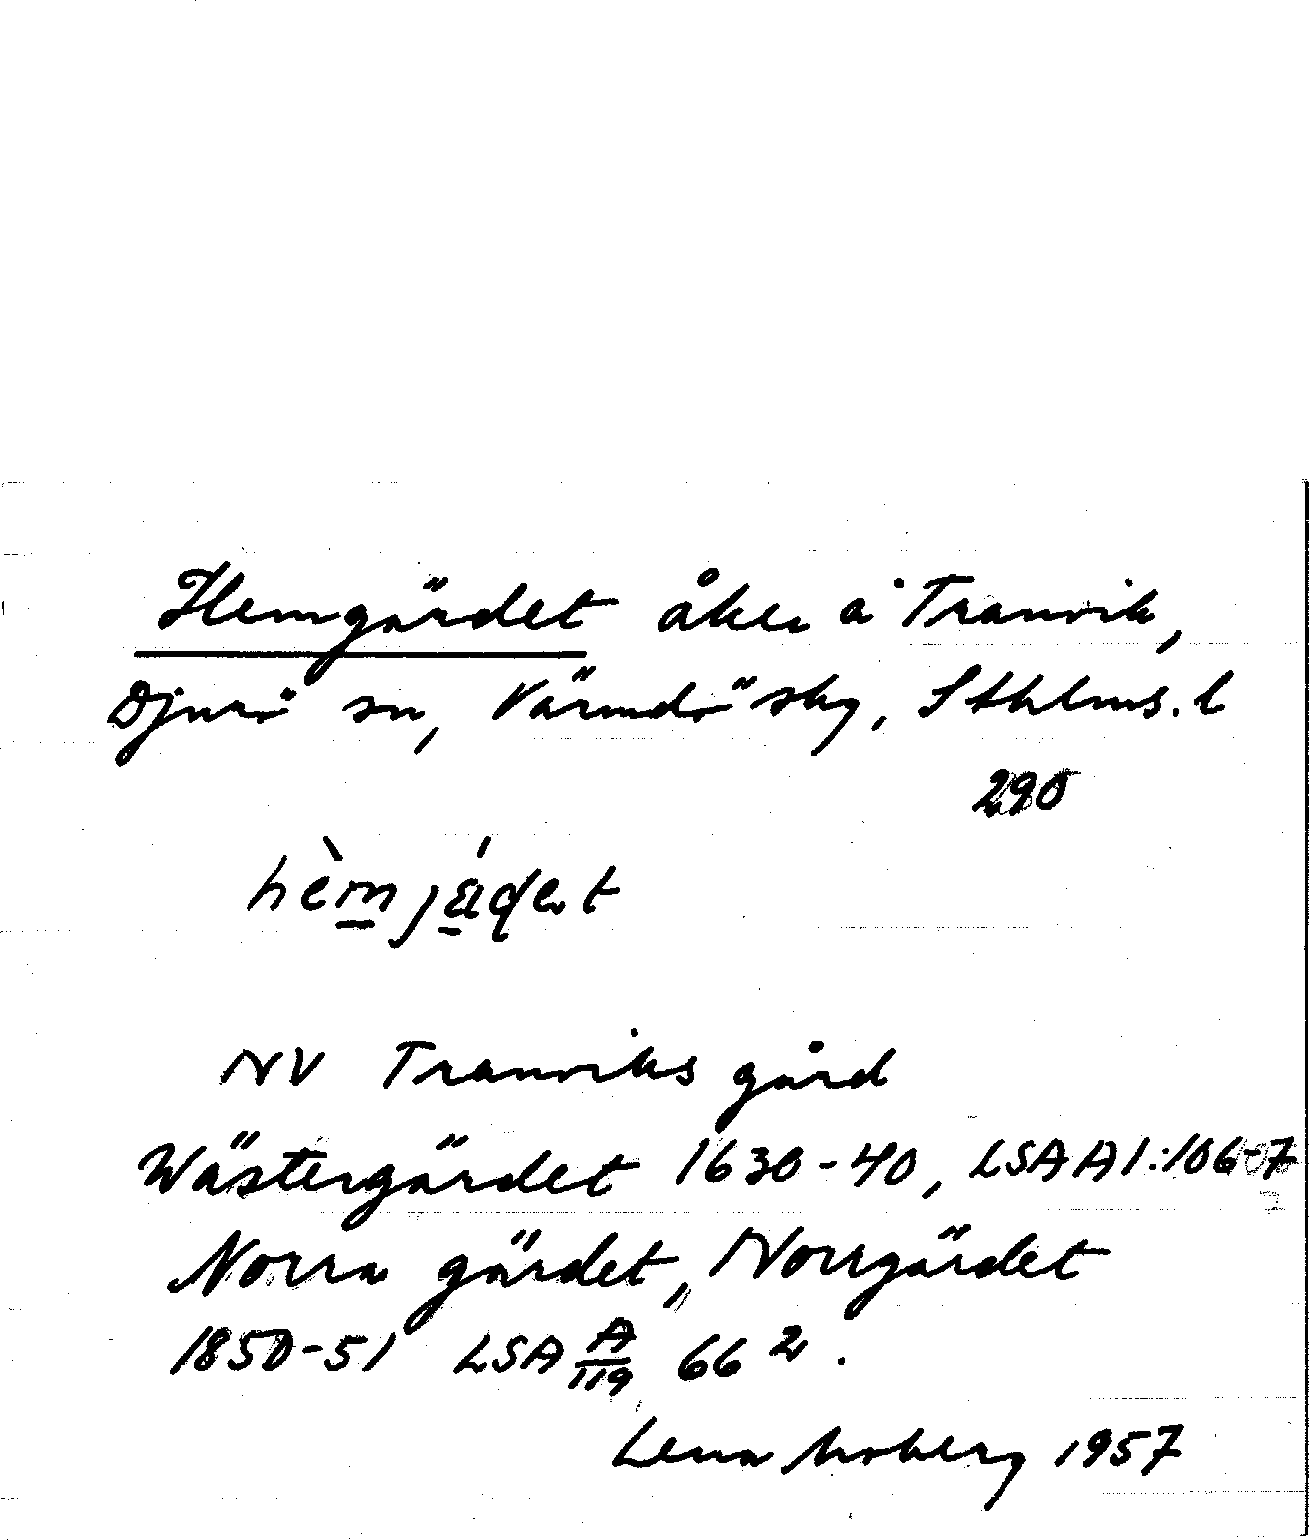 Hemgärdet åker å Tranvik,
Djurö sn, Värmdö skg, Sthlms. l
290
hèm jä́ɖet
NV Tranviks gård
Wästergärdet 1630-40, LSA A1:106-7
Norra gärdet, Norrgärdet
1850-51 LSA A/119 66².
Lena Moberg 1957